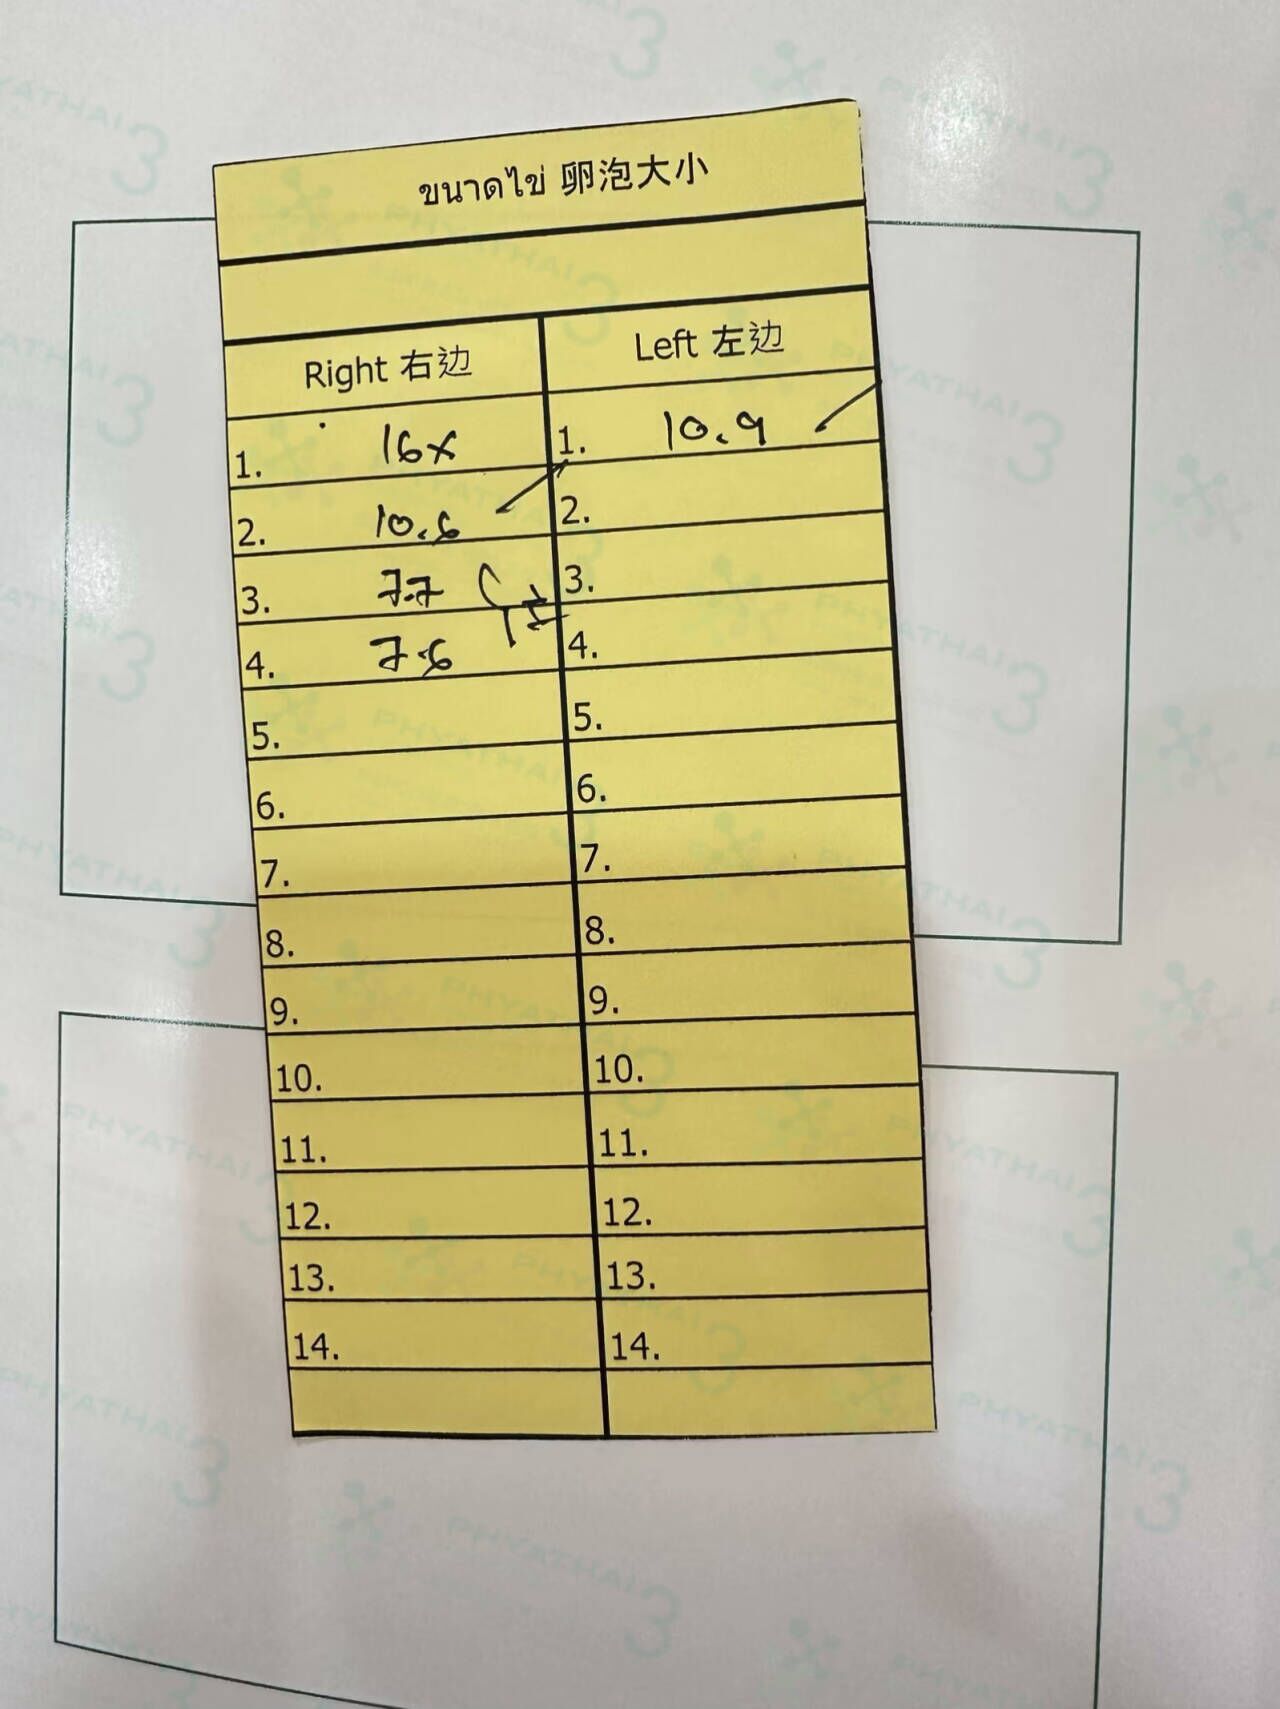 ขนาดไข่ 卵泡大小
Right 右边
Left 左边
1. 16x
1. 10.9
2. 10.6
2.
3. 7.7
3.
4. 7.6
4.
5.
5.
6.
6.
7.
7.
8.
8.
9.
9.
10.
10.
11.
11.
12.
12.
13.
13.
14.
14.
PHYATHAI 3